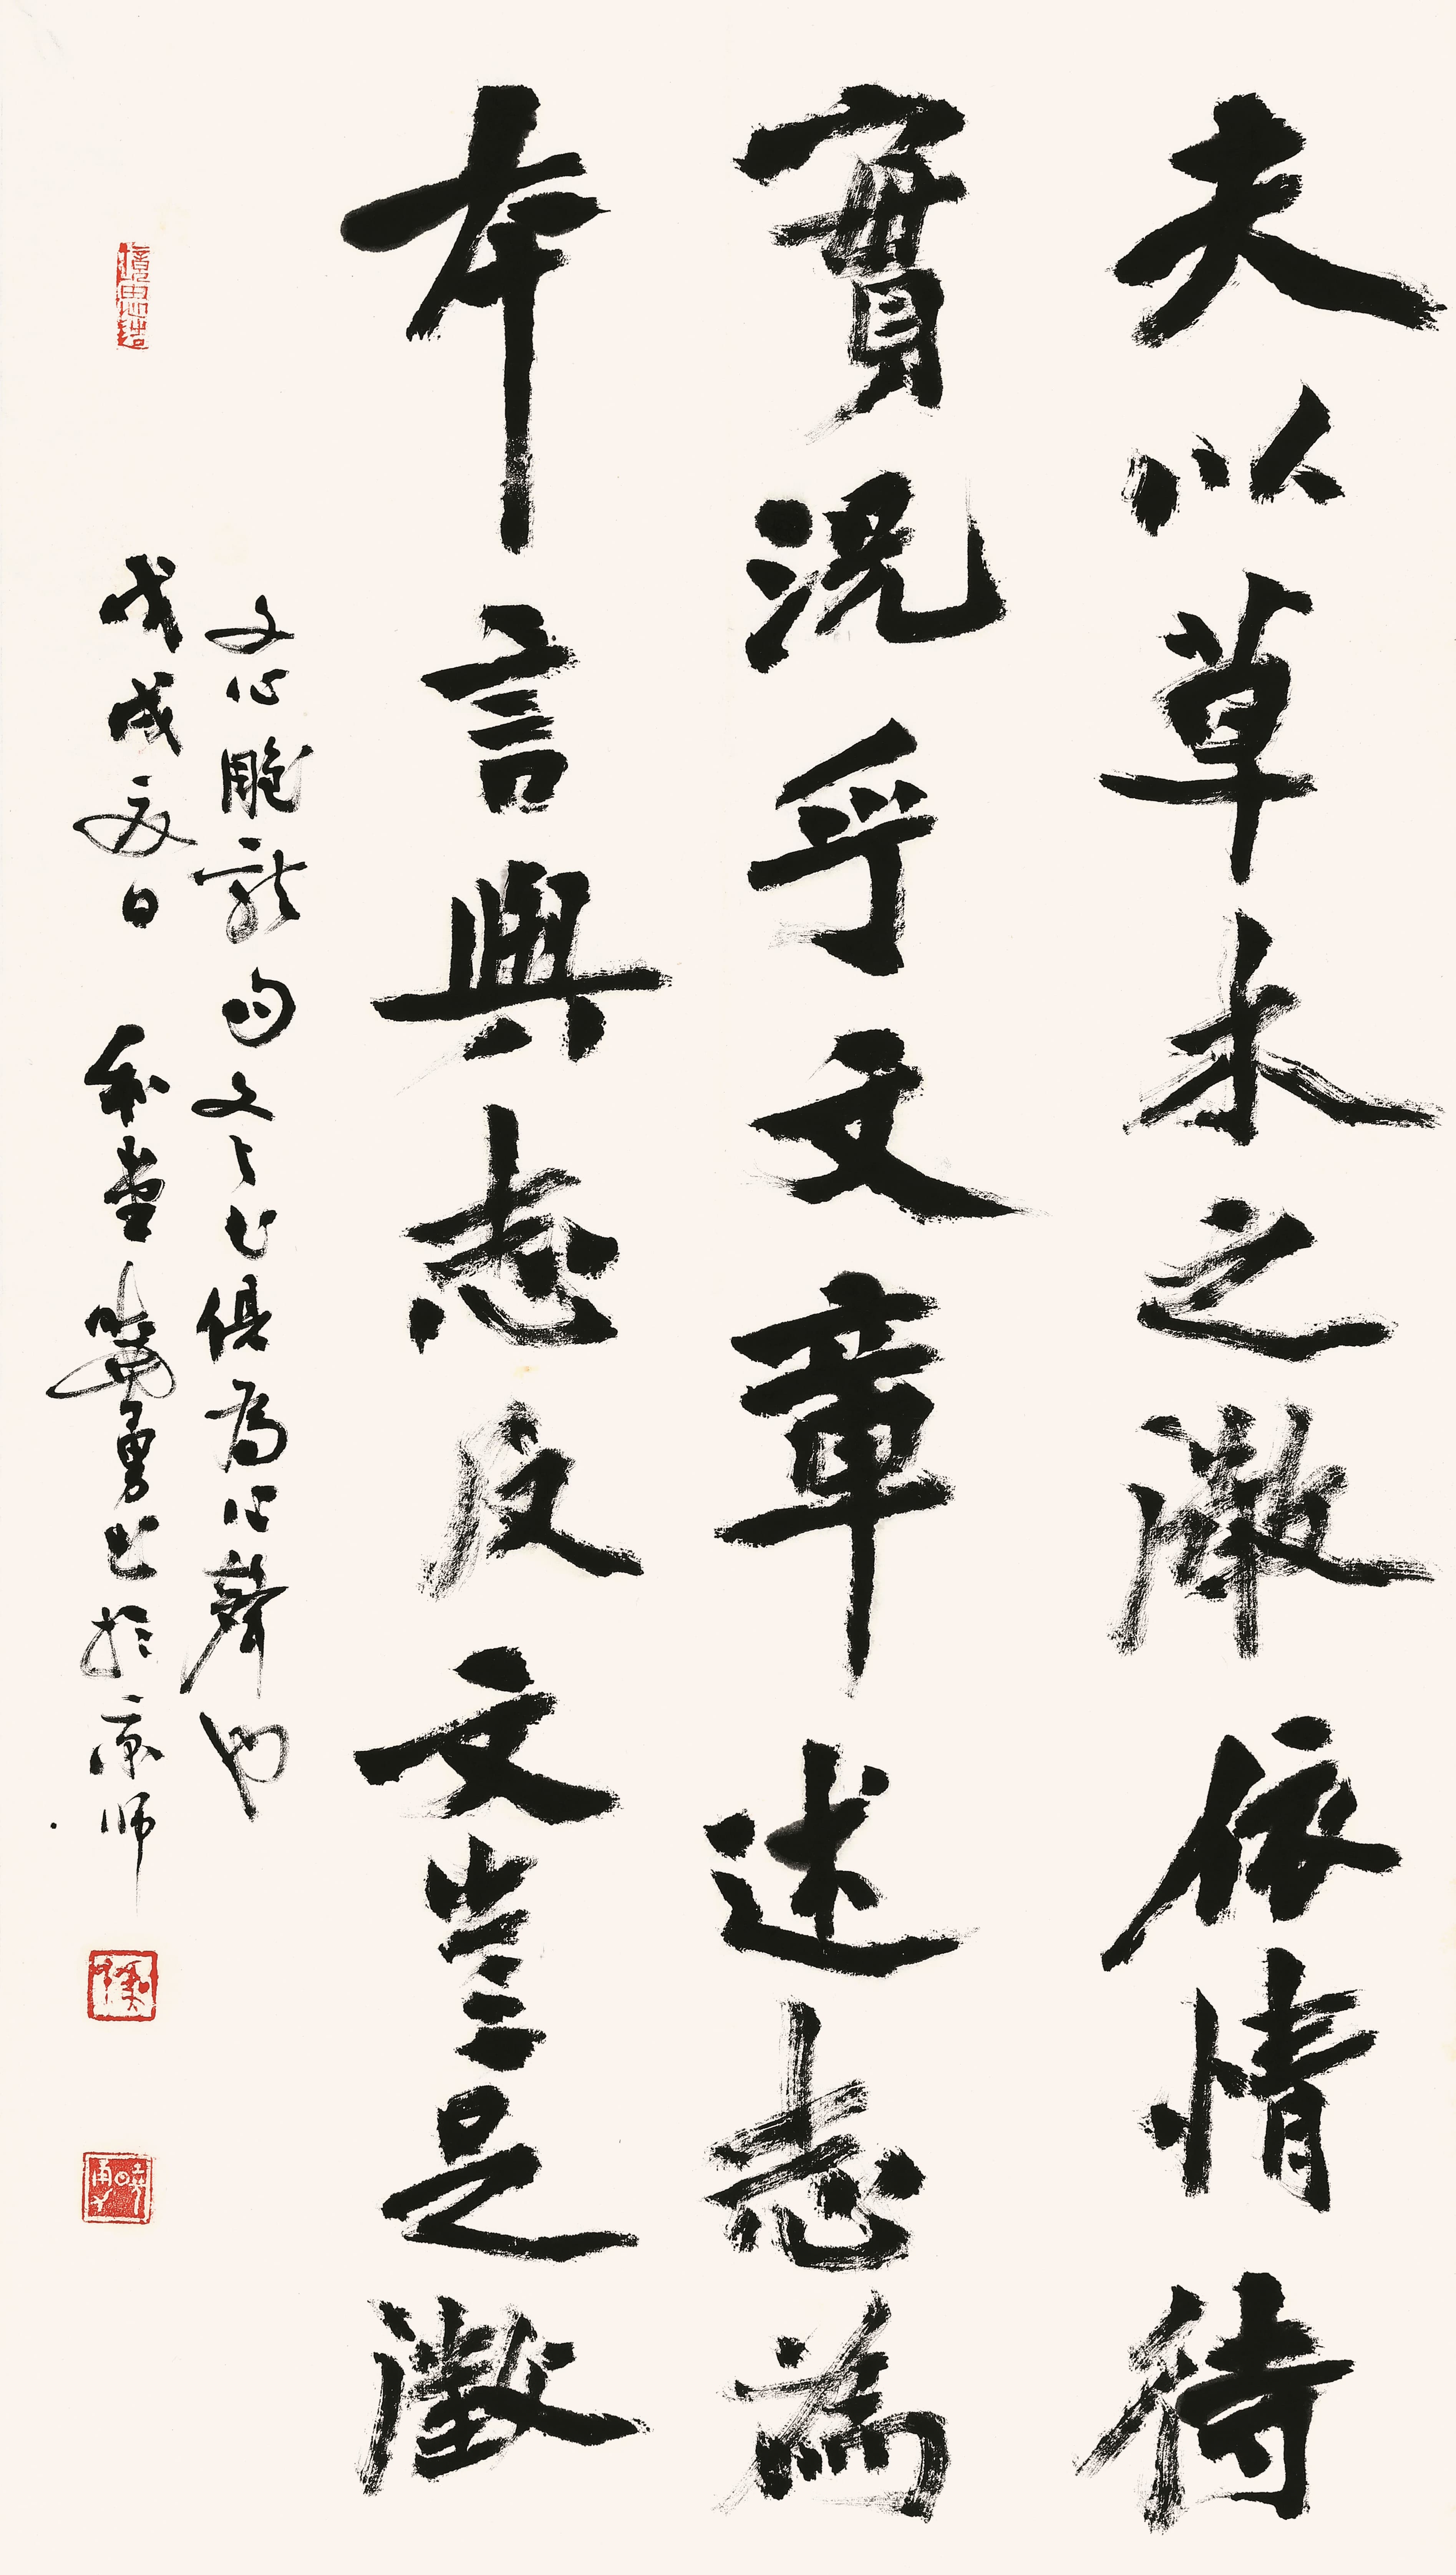 夫以草木之微依情待
實況乎文章述志為
本言與志反文豈足徵
文心雕龍句文與書俱為心聲也
戊戌夏日 和堂 勇書於京師